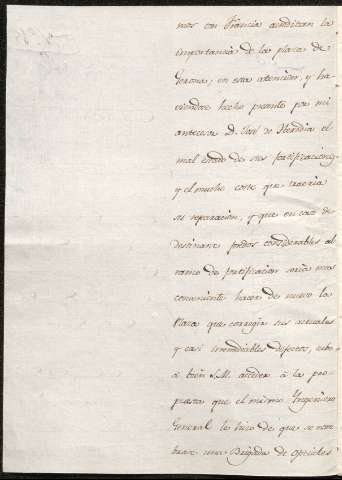 mos con Francia acreditan la
importancia de la plaza de
Gerona; en esta atencion, y ha-
viendose hecho presente por mi
antecesor D. José de Heredia el
mal estado de sus fortificaciones,
y el mucho coste que traeria
su reparacion, y que en caso de
destinarse fondos considerables al
ramo de fortificacion seria mas
conveniente hacer de nuevo la
Plaza que corregir sus actuales
y casi irremediables defectos, tubo
á bien S.M. acceder á la pro-
puesta que el mismo Yngeniero
General le hizo de que se nom-
brase una Brigada de oficiales